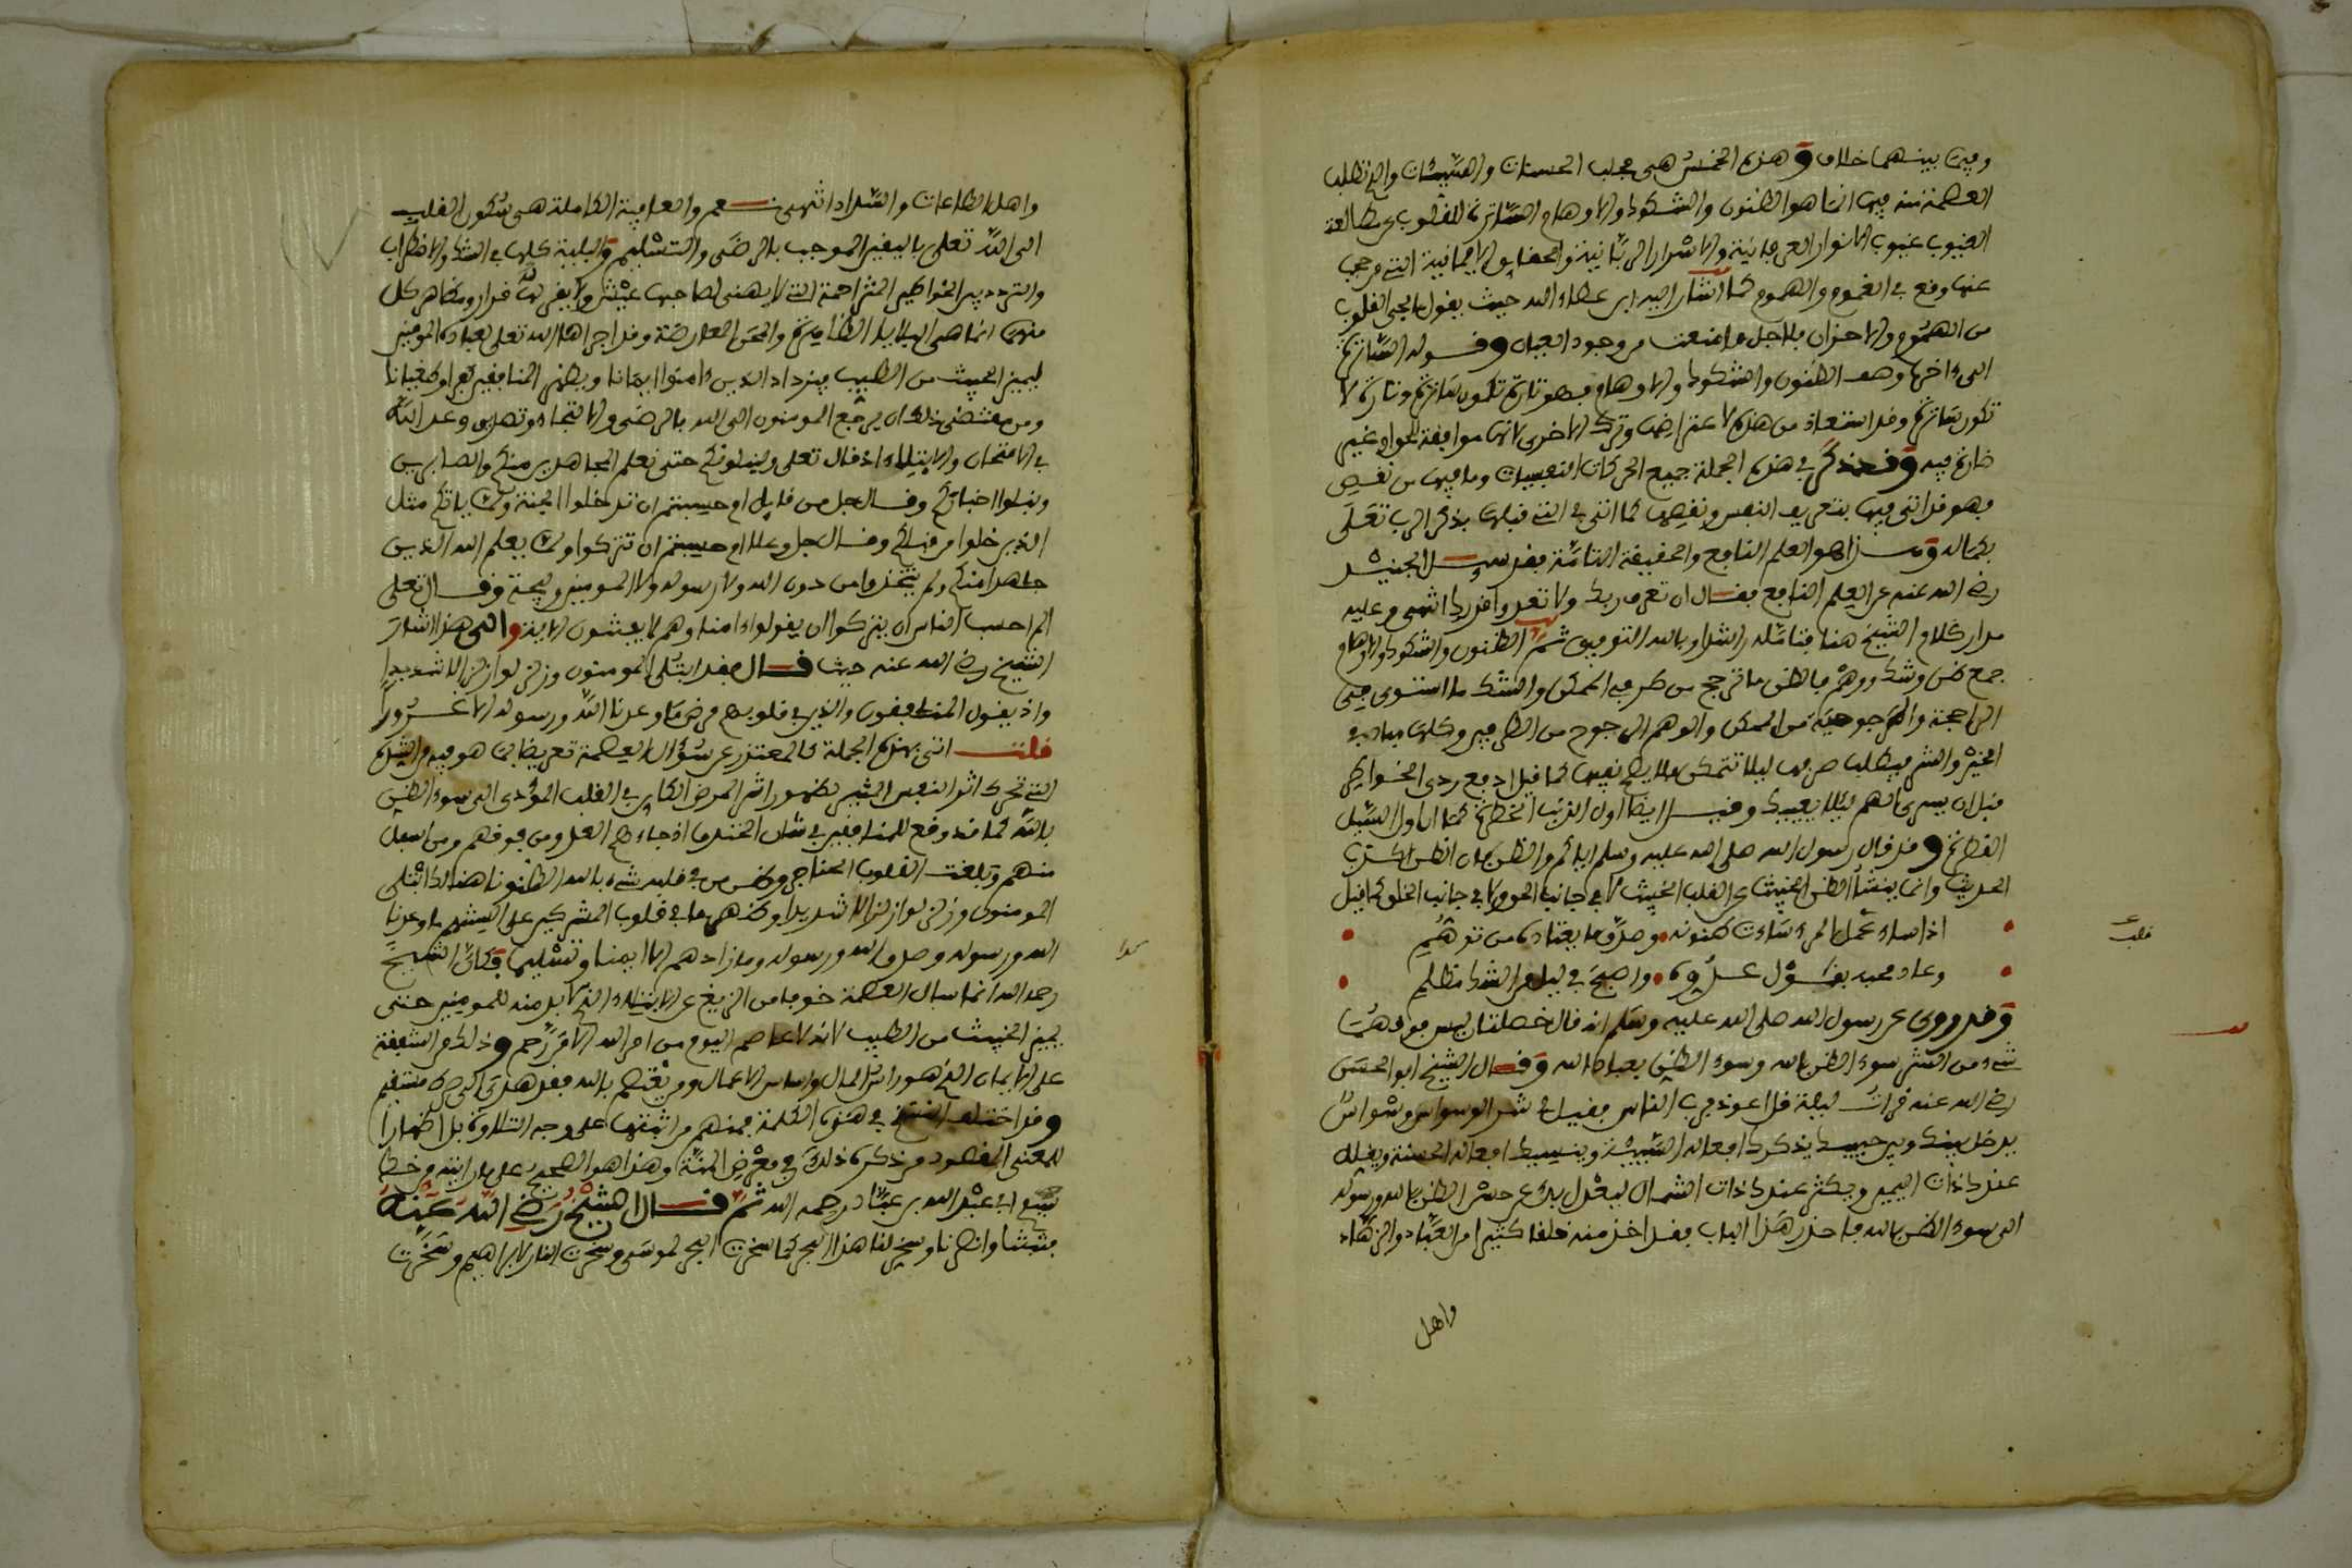 وفيما بينهما خلاف وهذه الخمس هي مجلب الحسنات والسيئات والذي تطلب
العصمة منه فيها انما هو الظنون والشكوك والاوهام الساترة للقلوب عن مطالعة
الغيوب غيوب الانوار العرفانية والاسرار الربانية والحقايق الايمانية التي من حجب
عنها وقع في الغموم والهموم كما اشار اليه ابن عطاء الله حيث يقول ما تجده القلوب
من الهموم والاحزان فلاجل ما منعت من وجود العيان وقوله الساترة
الى ءاخرها وصف الظنون والشكوك والاوهام فهو تارة تكون ساترة وتارة لا
تكون ساترة وقد استعاذ من هذه لاعتراضها وترك الاخرى لانها موافقة للحق او غير
ضارة فيه وقد ذكر في هذه الجملة جميع الحركات النفسيات وما فيها من نقص
فهو قد اتى فيها بتعريف النفس ونقصها كما اتى في التي قبلها بذكر الرب تعلى
بكماله وهذا هو العلم النافع والحقيقة التامة فقد سئل الجنيد
رضي الله عنه عن العلم النافع فقال ان تعرف ربك ولا تعدو قدرك انتهى وعليه
مدار كلام الشيخ هنا فتامله راشدا وبالله التوفيق ثم الظنون والشكوك والاوهام
جمع ظن وشك ووهم فالظن ما ترجح من طرفي الممكن والشك ما استوى فيه
الراجحية والمرجوحية من الممكن والوهم المرجوح من الطرفين وكلها مبادي
الخير والشر فيطلب صرفها ليلا تتمكن فلا يصح نفيها كما قيل ادفع ردي الخواطر
قبل ان يسري الهم ليلا يعييك وقيل ايضا اول الذنب الخطرة كما ان اول السيل
القطرة وقد قال رسول الله صلى الله عليه وسلم اياكم والظن فان الظن اكذب
الحديث وانما ينشا الظن الخبيث عن القلب الخبيث لا في جانب الحق ولا في جانب الخلق كما قيل
اذا ساء فعل المرء ساءت ظنونه وصدق ما يعتاده من توهم
وعادى محبيه بقول عدوه واصبح في ليل من الشك مظلم
قلب
وقد روي عن رسول الله صلى الله عليه وسلم انه قال خصلتان ليس فوقهما
شيء من الشر سوء الظن بالله وسوء الظن بعباد الله وقال الشيخ ابو الحسن
رضي الله عنه قرات ليلة قل اعوذ برب الناس فقيل لي شر الوسواس وسواس
يدخل بينك وبين حبيبك يذكرك افعالك السيئة وينسيك افعالك الحسنة ويقلل
عندك ذات اليمين ويكثر عندك ذات الشمال ليعدل بك عن حسن الظن بالله ورسوله
الى سوء الظن بالله فاحذر هذا الباب فقد اخذ منه خلقا كثيرا من العباد والزهاد
واهل
واهل الطاعات والسداد انتهى نعم والعافية الكاملة هي سكون القلب
الى الله تعلى باليقين الموجب بالرضى والتسليم والبلية كلها في الشك والاضطراب
والتردد بين الخواطر المتزاحمة التي لا يهنى لصاحبها عيش ولا يقر له قرار ومظاهر كل
منهما انما هي البلايا الظاهرة والمحن العارضة وقد اجراها الله تعلى لعباده المومنين
ليميز الخبيث من الطيب فيزداد الذين ءامنوا ايمانا ويظهر المنافقين كفرا وطغيانا
ومن مقتضى ذلك ان يرجع المومنون الى الله بالرضى والالتجاء وتصديق وعد الله
في الامتحان والابتلاء اذ قال تعلى ولنبلونكم حتى نعلم المجاهدين منكم والصابرين
ونبلوا اخباركم وقال جل من قايل ام حسبتم ان تدخلوا الجنة ولما ياتكم مثل
الذين خلوا من قبلكم وقال جل وعلا ام حسبتم ان تتركوا ولما يعلم الله الذين
جاهدوا منكم ولم يتخذوا من دون الله ولا رسوله ولا المومنين وليجة وقال تعلى
الم احسب الناس ان يتركوا ان يقولوا ءامنا وهم لا يفتنون الاية والى هذا اشار
الشيخ رضي الله عنه حيث قال فقد ابتلي المومنون وزلزلوا زلزالا شديدا
واذ يقول المنافقون والذين في قلوبهم مرض ما وعدنا الله ورسوله الا غرورا
قلت اتى بهذه الجملة كالمعتذر عن سؤال العصمة تعريضا بما هو فيه من الشدة
التي تحرك اثر النفس المثير لظهور اثر المرض الكاين في القلب المؤدي الى سوء الظن
بالله كما قد وقع للمنافقين في شان الخندق اذ جاءهم العدو من فوقهم ومن اسفل
منهم وبلغت القلوب الحناجر وظن من في قلبه شيء بالله الظنونا هنالك ابتلي
المومنون وزلزلوا زلزالا شديدا وظهر ما في قلوب المشركين على السنتهم ما وعدنا
الله ورسوله وصدق الله ورسوله وما زادهم الا ايمنا وتسليما وكان الشيخ
رحمه الله انما سال العصمة خوفا من الزيغ عن الابتلاء الذي لا بد منه للمومنين حتى
يميز الخبيث من الطيب لانه لا عاصم اليوم من امر الله الا من رحم وذلك من الشفقة
على الايمان الذي هو راس المال واساس الاعمال ومن يعتصم بالله فقد هدي الى صراط مستقيم
وقد اختلف النسخ في هذه الكلمة فمنهم من اثبتها على وجه التلاوة بل اظهارا
للمعنى المقصود من ذكره ذلك في معرض المنة وهذا هو الصحيح على ما رايته من خط
سيدي ابي عبد الله بن عباد رحمه الله ثم قال الشيخ رضي الله عنه
فثبتنا وانصرنا وسخر لنا هذا البحر كما سخرت البحر لموسى وسخرت النار لابراهيم وسخرت